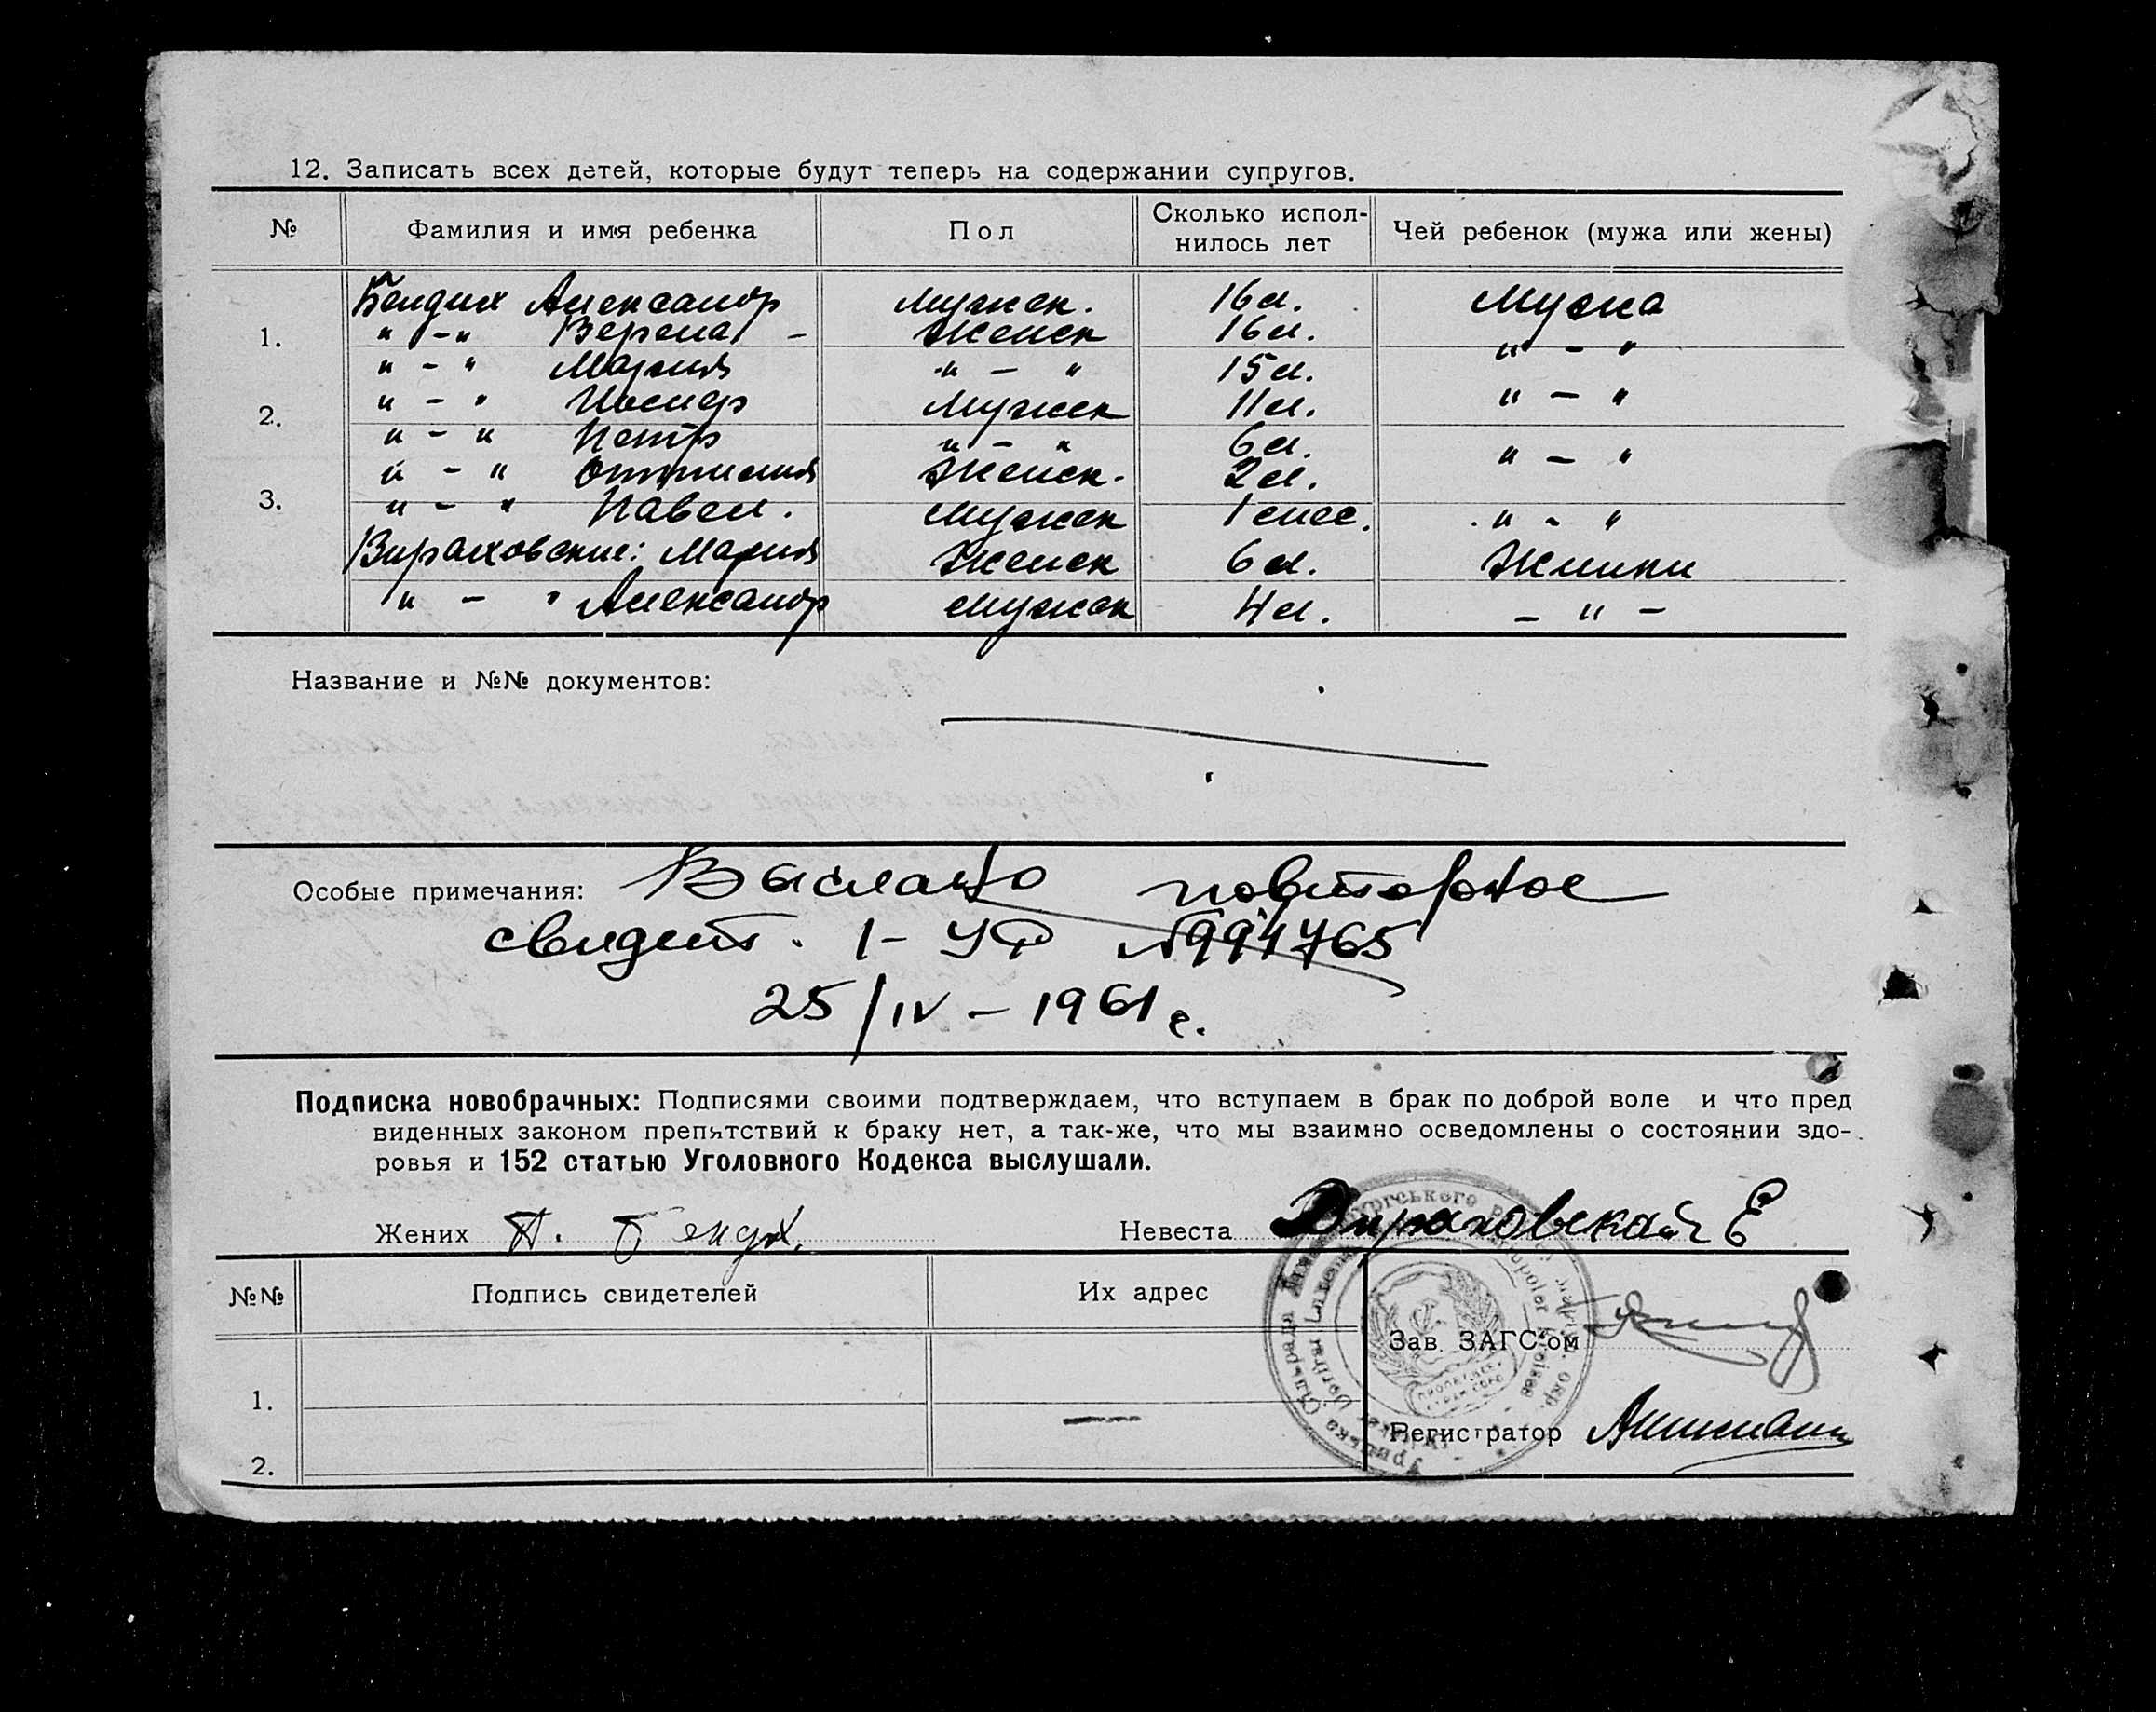 12. Записать всех детей, которые будут теперь на содержании супругов.
№ Фамилия и имя ребенка Пол Сколько испол-нилось лет Чей ребенок (мужа или жены)
Бендик Александр Мужск. 16 л. Мужа
1. " - " Верена - Женск 16 л. " - "
" - " Мария " - " 15 л.
2. " - " Иосиф Мужск 11 л. " - "
" - " Петр " - " 6 л. " - "
3. " - " Оттилия Женск. 2 л.
" - " Павел. Мужск 1 мес. " - "
Вираховские: Мария Женск 6 л. Жинки
" - " Александр мужск 4 л. - " -
Название и №№ документов:
Особые примечания: Выслано повторное
свидет. I - УФ №994765
25/IV - 1961 г.
Подписка новобрачных: Подписями своими подтверждаем, что вступаем в брак по доброй воле и что пред
виденных законом препятствий к браку нет, а так-же, что мы взаимно осведомлены о состоянии здо-
ровья и 152 статью Уголовного Кодекса выслушали.
Жених П. Бендик Невеста Вираховская Е
№№ Подпись свидетелей Их адрес
Зав. ЗАГС-ом
1. —
Регистратор
2.